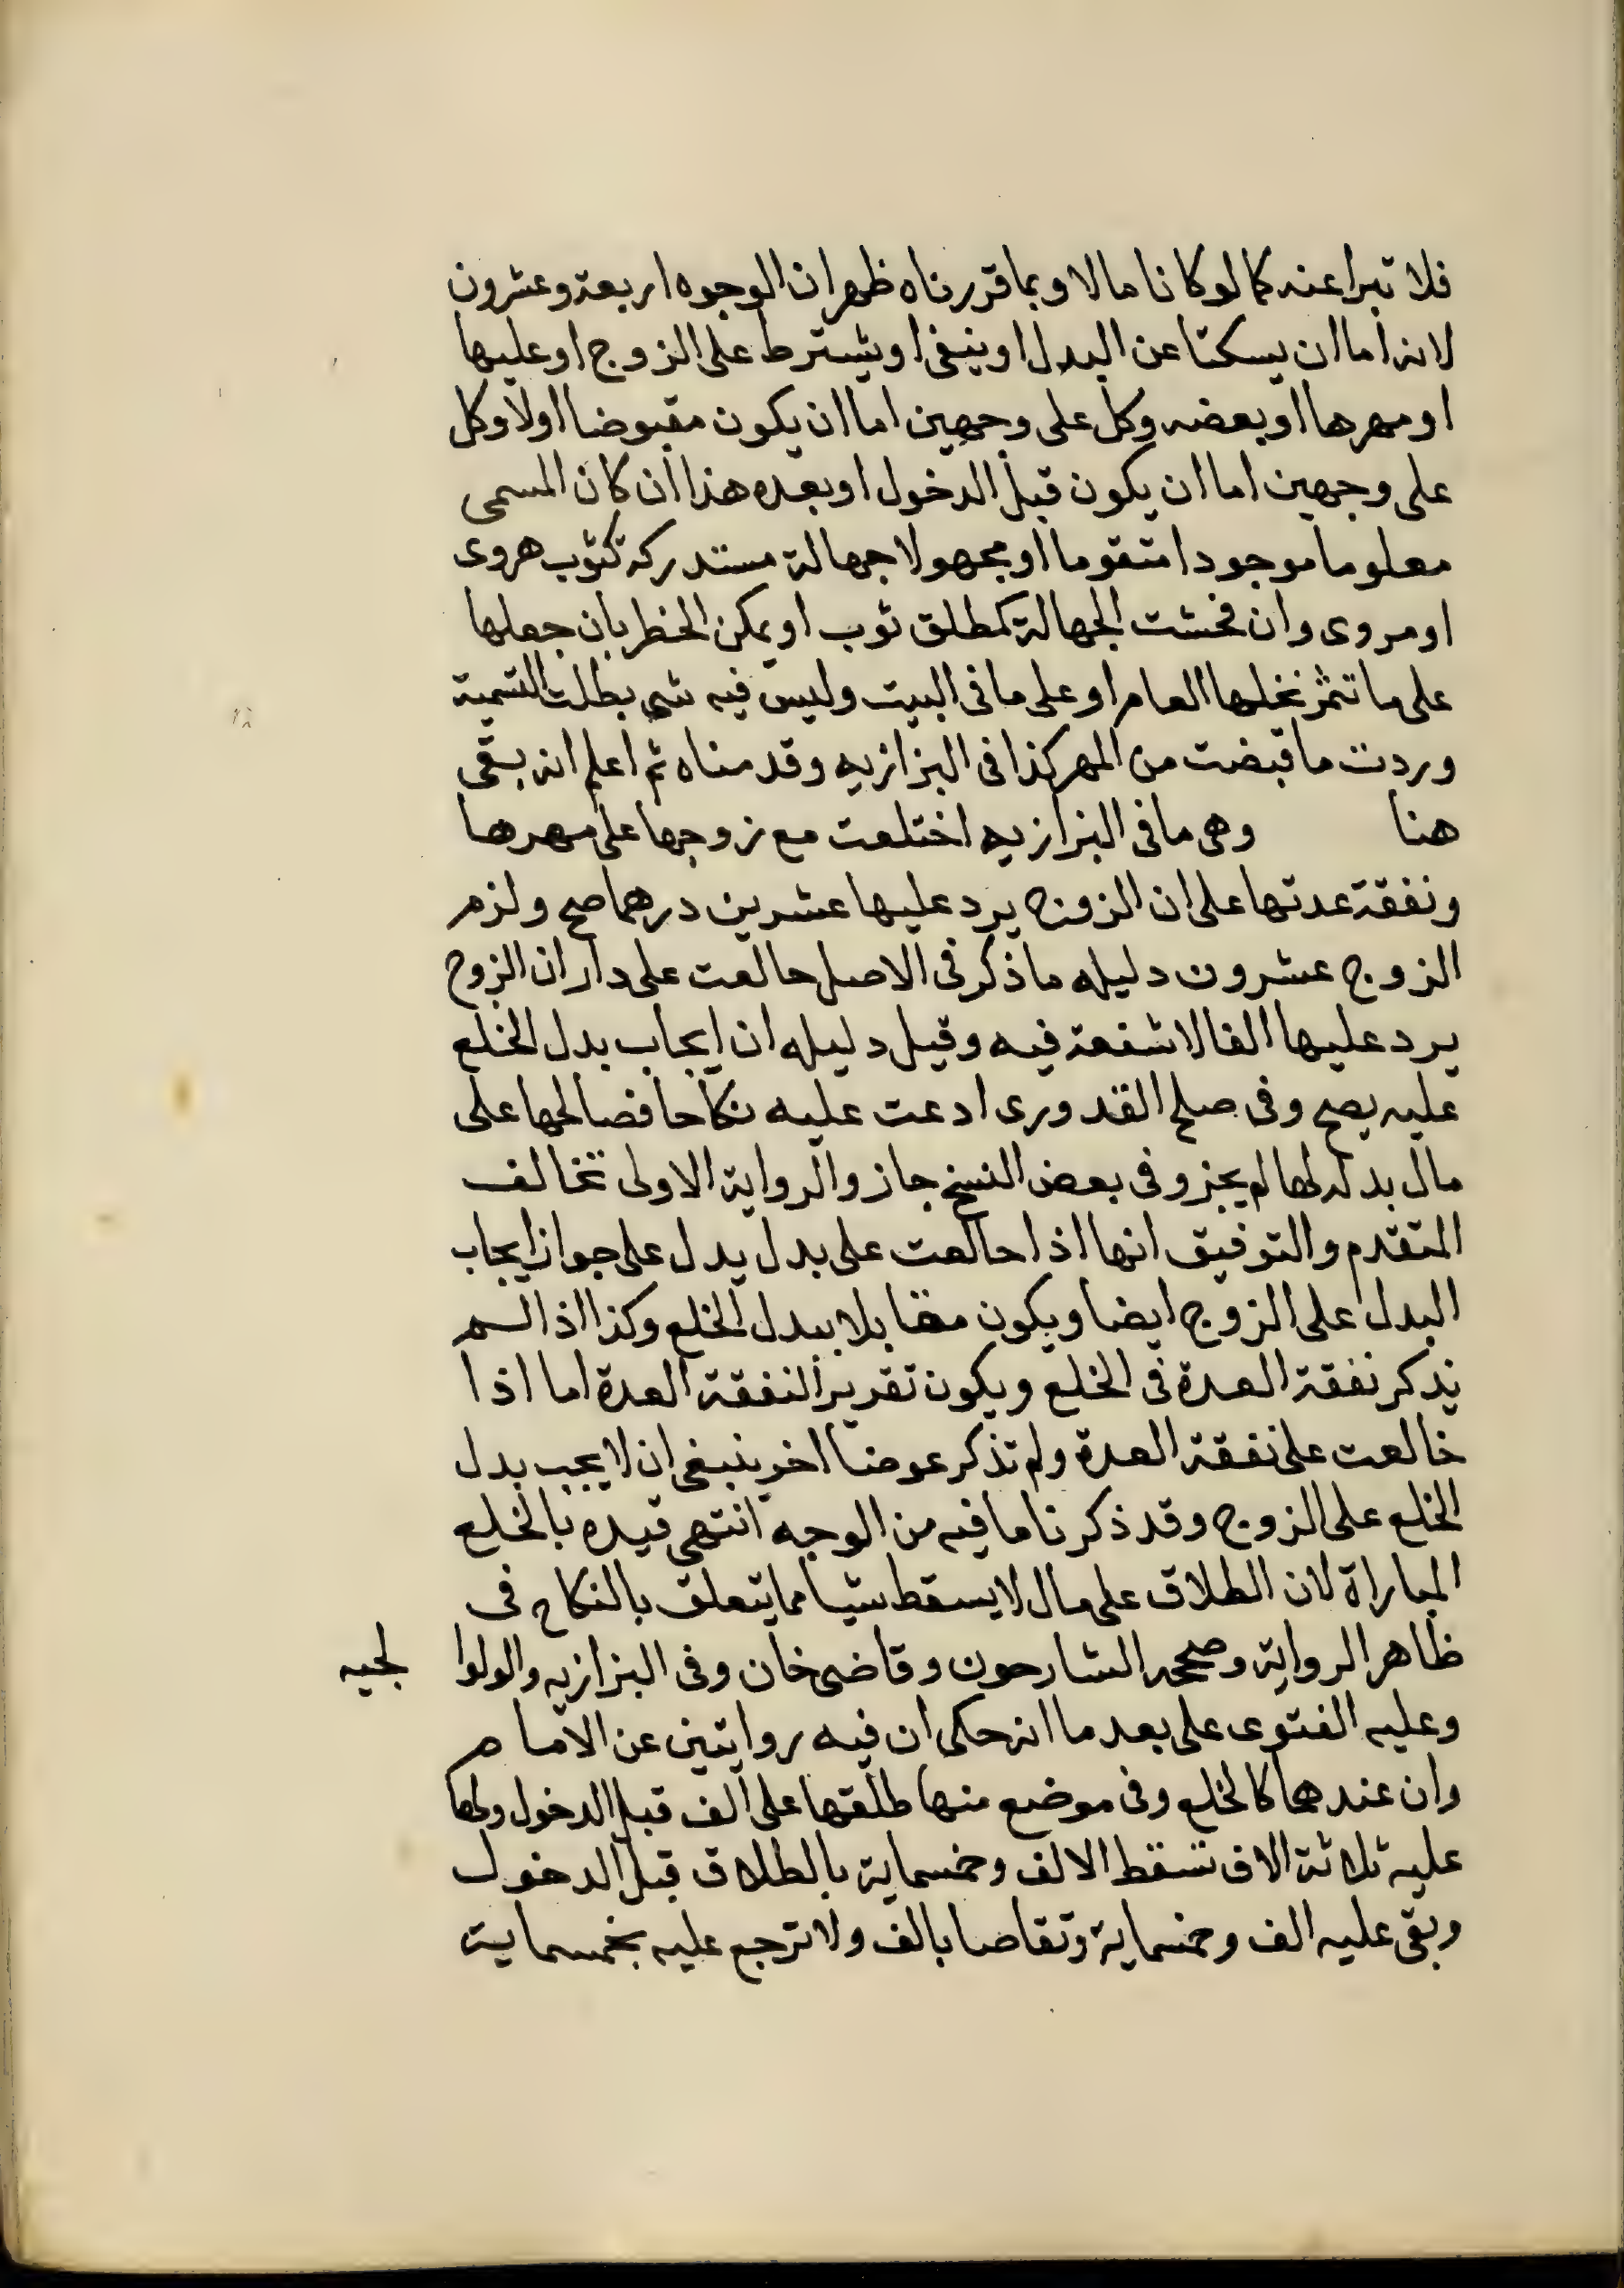 فلا تبرا عنه كما لو كانا مالا وبما قررناه ظهر ان الوجوه اربعة وعشرون
لانه اما ان يسكتا عن البدل او ينفى او يشترط على الزوج او عليها
او مهرها او بعضه وكل على وجهين اما ان يكون مقبوضا اولا وكل
على وجهين اما ان يكون قبل الدخول او بعده هذا ان كان المسمى
معلوما موجودا متقوما او مجهولا جهالة مستدركة كثوب هروى
او مروى وان فحشت الجهالة كمطلق ثوب او يمكن الخطر بان جعلها
على ما تثمر نخلها العام او على ما فى البيت وليس فيه شى بطلت التسمية
وردت ما قبضت من المهر كذا فى البزازيه وقدمناه ثم اعلم انه بقى
هنا وهى ما فى البزازيه اختلعت مع زوجها على مهرها
ونفقة عدتها على ان الزوج يرد عليها عشرين درهما صح ولزم
الزوج عشرون دليله ما ذكر فى الاصل حالعت على دار ان الزوج
يرد عليها الفا لا شفعة فيه وقيل دليله ان ايجاب بدل الخلع
عليه يصح وفى صلح القدورى ادعت عليه نكاحا فصالحها على
مال بدله لها لم يجز وفى بعض النسخ جاز والرواية الاولى تخالف
المتقدم والتوفيق انها اذا حالعت على بدل يدل على جواز ايجاب
البدل على الزوج ايضا ويكون مقابلا ببدل الخلع وكذا اذا لسم
يذكر نفقة العدة فى الخلع ويكون تقديرا لنفقة العدة اما اذا
خالعت على نفقة العدة ولم تذكر عوضا اخر ينبغى ان لا يجب بدل
الخلع على الزوج وقد ذكرنا ما فيه من الوجه انتهى قيده بالخلع
المباراة لان الطلاق على مال لا يسقط شيا مما يتعلق بالنكاح فى
ظاهر الرواية وصححه الشارحون وقاضى خان وفى البزازيه والولوا لجيه
وعليه الفتوى على بعد ما انه حكى ان فيه روايتين عن الامام
وان عندهما كالخلع وفى موضع منها طلقها على الف قبل الدخول ولها
عليه ثلاثة الاف تسقط الالف وخمسماية بالطلاق قبل الدخول
وبقى عليه الف وخمسماية وتقاصا بالف ولا ترجع عليه بخمسماية